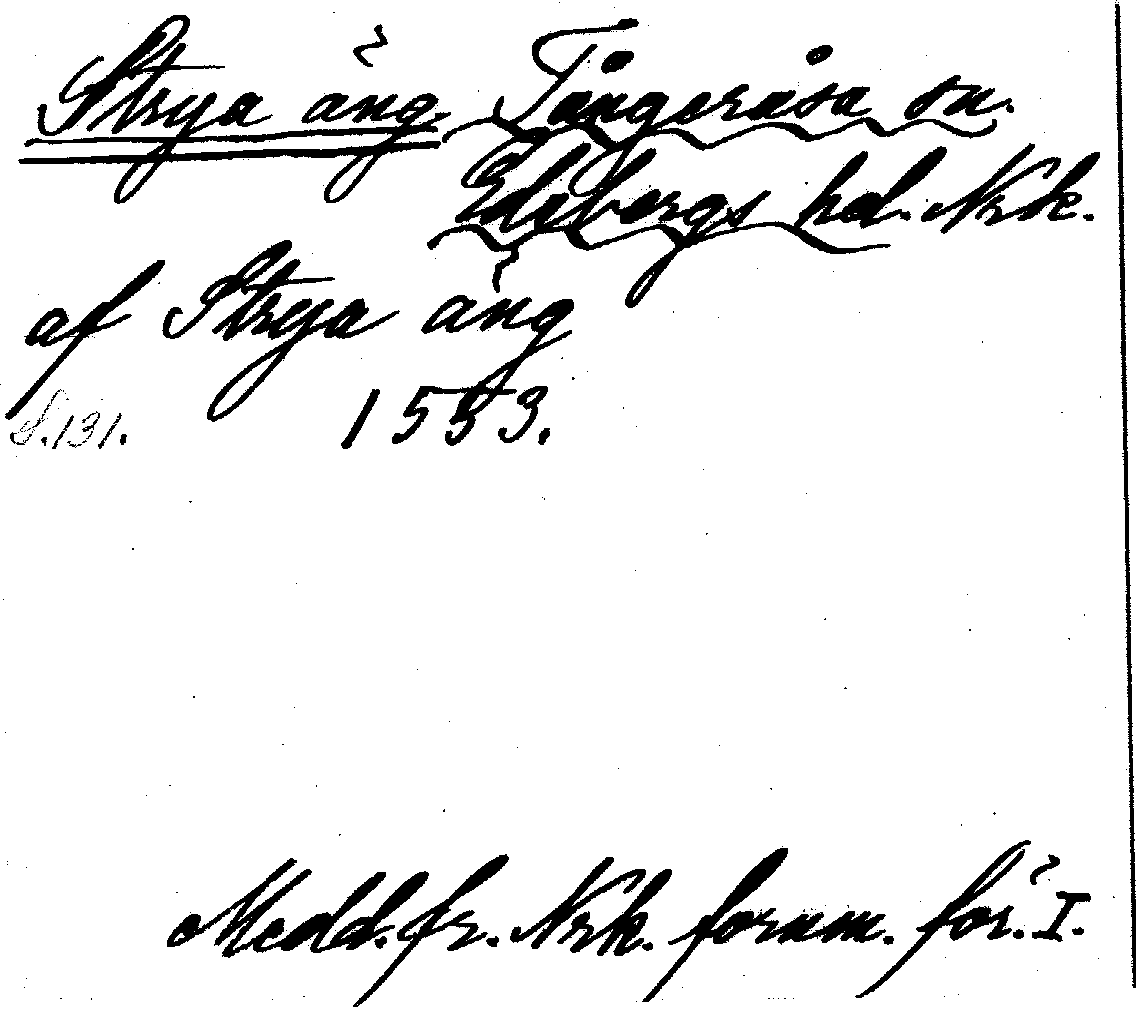 Strya äng. Tångeråsa sn.
Edsbergs hd. Nrk.
af Strya äng
S. 131. 1553.
Medd. fr. Nrk. fornm. för. I.